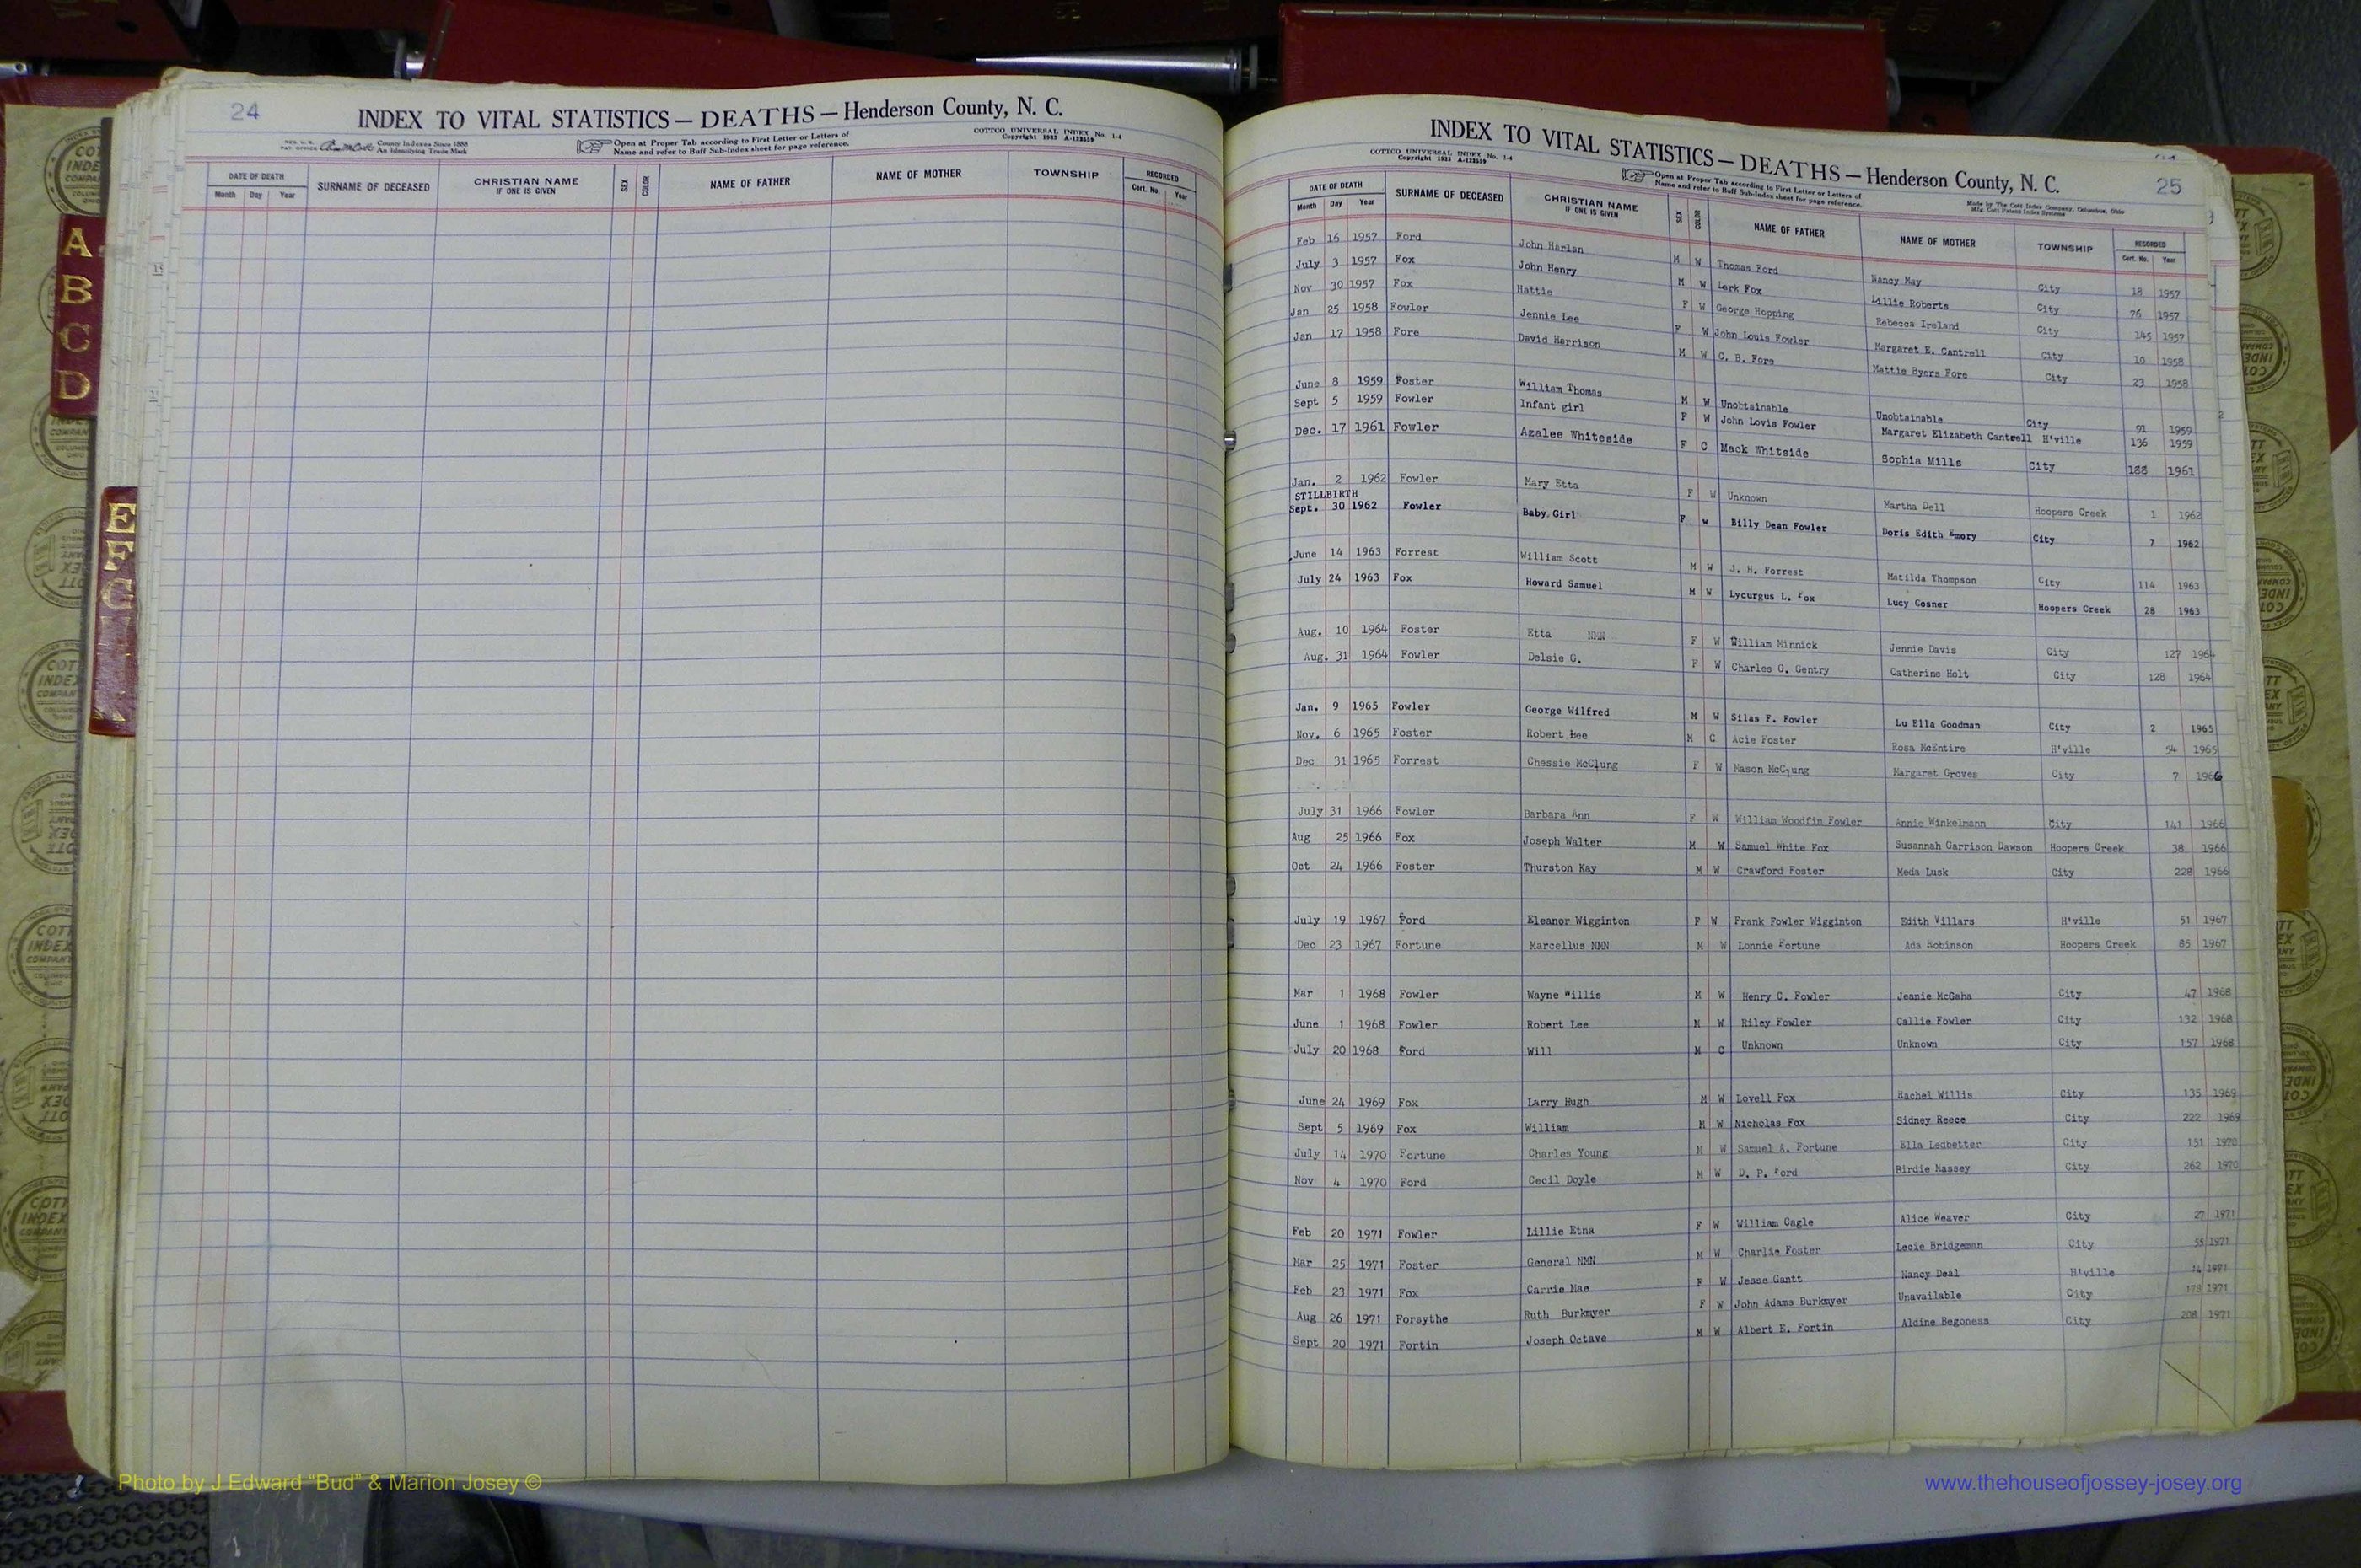 24
INDEX TO VITAL STATISTICS — DEATHS — Henderson County, N. C.
County Indexes Since 1888
An Identifying Trade Mark
Open at Proper Tab according to First Letter or Letters of
Name and refer to Buff Sub-Index sheet for page reference.
COTTCO UNIVERSAL INDEX No. 1-4
DATE OF DEATH SURNAME OF DECEASED CHRISTIAN NAME IF ONE IS GIVEN SEX COLOR NAME OF FATHER NAME OF MOTHER TOWNSHIP RECORDED
Month Day Year Cert. No. Year
A
B
C
D
E
F
G
INDEX TO VITAL STATISTICS — DEATHS — Henderson County, N. C.
25
COTTCO UNIVERSAL INDEX No. 1-4
Open at Proper Tab according to First Letter or Letters of
Name and refer to Buff Sub-Index sheet for page reference.
Made by The Cott Index Company, Columbus, Ohio
DATE OF DEATH SURNAME OF DECEASED CHRISTIAN NAME IF ONE IS GIVEN SEX COLOR NAME OF FATHER NAME OF MOTHER TOWNSHIP RECORDED
Month Day Year Cert. No. Year
Feb 16 1957 Ford John Harlan M W Thomas Ford Nancy May City 18 1957
July 3 1957 Fox John Henry M W Lerk Fox Lillie Roberts City 76 1957
Nov 30 1957 Fox Hattie F W George Hopping Rebecca Ireland City 145 1957
Jan 25 1958 Fowler Jennie Lee F W John Louis Fowler Margaret E. Cantrell City 10 1958
Jan 17 1958 Fore David Harrison M W C. B. Fore Mattie Byers Fore City 23 1958
June 8 1959 Foster William Thomas M W Unobtainable Unobtainable City 91 1959
Sept 5 1959 Fowler Infant girl F W John Lovis Fowler Margaret Elizabeth Cantrell H'ville 136 1959
Dec. 17 1961 Fowler Azalee Whiteside F C Mack Whitside Sophia Mills City 188 1961
Jan. 2 1962 Fowler Mary Etta F W Unknown Martha Dell Hoopers Creek 1 1962
STILLBIRTH
Sept. 30 1962 Fowler Baby Girl F W Billy Dean Fowler Doris Edith Emory City 7 1962
June 14 1963 Forrest William Scott M W J. H. Forrest Matilda Thompson City 114 1963
July 24 1963 Fox Howard Samuel M W Lycurgus L. Fox Lucy Cosner Hoopers Creek 28 1963
Aug. 10 1964 Foster Etta NMN F W William Minnick Jennie Davis City 127 1964
Aug. 31 1964 Fowler Delsie G. F W Charles G. Gentry Catherine Holt City 128 1964
Jan. 9 1965 Fowler George Wilfred M W Silas F. Fowler Lu Ella Goodman City 2 1965
Nov. 6 1965 Foster Robert Lee M C Acie Foster Rosa McEntire H'ville 54 1965
Dec 31 1965 Forrest Chessie McClung F W Mason McClung Margaret Groves City 7 1966
July 31 1966 Fowler Barbara Ann F W William Woodfin Fowler Annie Winkelmann City 141 1966
Aug 25 1966 Fox Joseph Walter M W Samuel White Fox Susannah Garrison Dawson Hoopers Creek 38 1966
Oct 24 1966 Foster Thurston Kay M W Crawford Foster Meda Lusk City 228 1966
July 19 1967 Ford Eleanor Wigginton F W Frank Fowler Wigginton Edith Villars H'ville 51 1967
Dec 23 1967 Fortune Marcellus NMN M W Lonnie Fortune Ada Robinson Hoopers Creek 85 1967
Mar 1 1968 Fowler Wayne Willis M W Henry C. Fowler Jeanie McGaha City 47 1968
June 1 1968 Fowler Robert Lee M W Riley Fowler Callie Fowler City 132 1968
July 20 1968 Ford Will M C Unknown Unknown City 157 1968
June 24 1969 Fox Larry Hugh M W Lovell Fox Rachel Willis City 135 1969
Sept 5 1969 Fox William M W Nicholas Fox Sidney Reece City 222 1969
July 14 1970 Fortune Charles Young M W Samuel A. Fortune Ella Ledbetter City 151 1970
Nov 4 1970 Ford Cecil Doyle M W D. P. Ford Birdie Massey City 262 1970
Feb 20 1971 Fowler Lillie Etna F W William Cagle Alice Weaver City 27 1971
Mar 25 1971 Foster General NMN M W Charlie Foster Lecie Bridgeman City 55 1971
Feb 23 1971 Fox Carrie Mae F W Jesse Gantt Nancy Deal H'ville 14 1971
Aug 26 1971 Forsythe Ruth Burkmyer F W John Adams Burkmyer Unavailable City 178 1971
Sept 20 1971 Fortin Joseph Octave M W Albert E. Fortin Aldine Begoness City 208 1971
Photo by J Edward “Bud” & Marion Josey ©
www.thehouseofjossey-josey.org